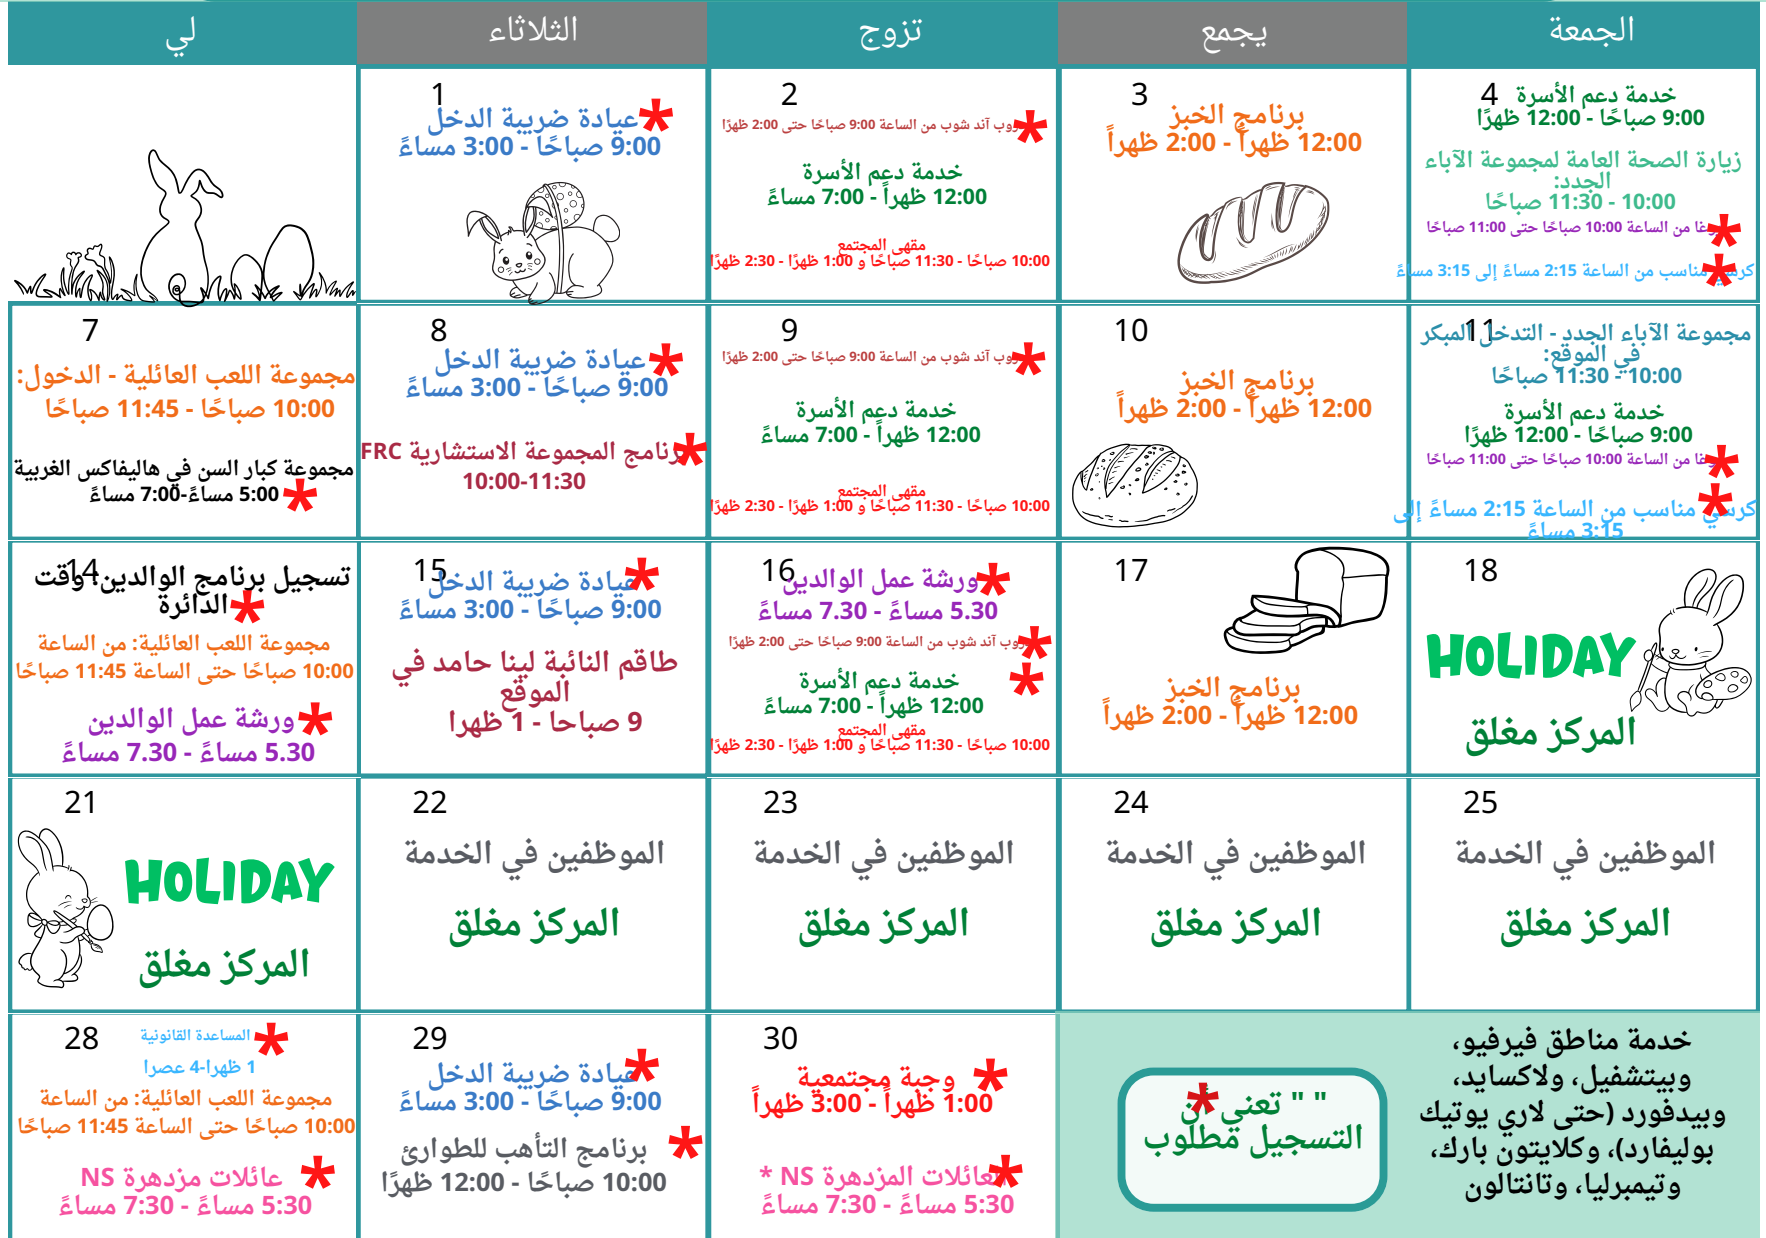 لي
الثلاثاء
تزوج
يجمع
الجمعة
1
عيادة ضريبة الدخل
9:00 صباحًا - 3:00 مساءً
2
روب آند شوب من الساعة 9:00 صباحًا حتى 2:00 ظهرًا
خدمة دعم الأسرة
12:00 ظهراً - 7:00 مساءً
مقهى المجتمع
10:00 صباحًا - 11:30 صباحًا و 1:00 ظهرًا - 2:30 ظهرًا
3
برنامج الخبز
12:00 ظهراً - 2:00 ظهراً
4
خدمة دعم الأسرة
9:00 صباحًا - 12:00 ظهرًا
زيارة الصحة العامة لمجموعة الآباء
الجدد:
10:00 - 11:30 صباحًا
من الساعة 10:00 صباحًا حتى 11:00 صباحًا
كرسي مناسب من الساعة 2:15 مساءً إلى 3:15 مساءً
7
مجموعة اللعب العائلية - الدخول:
10:00 صباحًا - 11:45 صباحًا
مجموعة كبار السن في هاليفاكس الغربية
5:00 مساءً-7:00 مساءً
8
عيادة ضريبة الدخل
9:00 صباحًا - 3:00 مساءً
برنامج المجموعة الاستشارية FRC
10:00-11:30
9
روب آند شوب من الساعة 9:00 صباحًا حتى 2:00 ظهرًا
خدمة دعم الأسرة
12:00 ظهراً - 7:00 مساءً
مقهى المجتمع
10:00 صباحًا - 11:30 صباحًا و 1:00 ظهرًا - 2:30 ظهرًا
10
برنامج الخبز
12:00 ظهراً - 2:00 ظهراً
11
مجموعة الآباء الجدد - التدخل المبكر
في الموقع:
10:00 - 11:30 صباحًا
خدمة دعم الأسرة
9:00 صباحًا - 12:00 ظهرًا
من الساعة 10:00 صباحًا حتى 11:00 صباحًا
كرسي مناسب من الساعة 2:15 مساءً إلى
3:15 مساءً
14
تسجيل برنامج الوالدين: وقت
الدائرة
مجموعة اللعب العائلية: من الساعة
10:00 صباحًا حتى الساعة 11:45 صباحًا
ورشة عمل الوالدين
5.30 مساءً - 7.30 مساءً
15
عيادة ضريبة الدخل
9:00 صباحًا - 3:00 مساءً
طاقم النائبة لينا حامد في
الموقع
9 صباحا - 1 ظهرا
16
ورشة عمل الوالدين
5.30 مساءً - 7.30 مساءً
روب آند شوب من الساعة 9:00 صباحًا حتى 2:00 ظهرًا
خدمة دعم الأسرة
12:00 ظهراً - 7:00 مساءً
مقهى المجتمع
10:00 صباحًا - 11:30 صباحًا و 1:00 ظهرًا - 2:30 ظهرًا
17
برنامج الخبز
12:00 ظهراً - 2:00 ظهراً
18
HOLIDAY
المركز مغلق
21
HOLIDAY
المركز مغلق
22
الموظفين في الخدمة
المركز مغلق
23
الموظفين في الخدمة
المركز مغلق
24
الموظفين في الخدمة
المركز مغلق
25
الموظفين في الخدمة
المركز مغلق
28
المساعدة القانونية
1 ظهرا-4 عصرا
مجموعة اللعب العائلية: من الساعة
10:00 صباحًا حتى الساعة 11:45 صباحًا
عائلات مزدهرة NS
5:30 مساءً - 7:30 مساءً
29
عيادة ضريبة الدخل
9:00 صباحًا - 3:00 مساءً
برنامج التأهب للطوارئ
10:00 صباحًا - 12:00 ظهرًا
30
وجبة مجتمعية
1:00 ظهراً - 3:00 ظهراً
العائلات المزدهرة NS *
5:30 مساءً - 7:30 مساءً
" " تعني أن
التسجيل مطلوب
خدمة مناطق فيرفيو،
وبيتشفيل، ولاكسايد،
وبيدفورد (حتى لاري يوتيك
بوليفارد)، وكلايتون بارك،
وتيمبرليا، وتانتالون